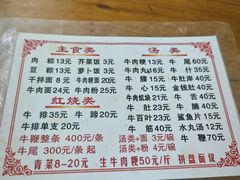 主食类 汤类
肉粽 13元 芥菜饭 3元 牛肉粳 13元 牛尾 60元
豆粽 13元 萝卜饭 3元 牛肉 15元 牛肚 31元
干拌面 8元 牛肉羹面 20元 牛腩 16元 牛肚岸 40元
牛肉面 24元 牛肉粉 25元 牛心 14元 金钱肚 40元
红烧类 牛肉抓块 21元 牛肚 33元
牛排 51元 牛蹄 20元 牛舌 35元 牛肚 39元
牛排单支 20元 牛筋 40元 牛肚 33元
牛鞭整条 400元/条 牛百叶 32元 鲨鱼片 15元
牛尾 300元/条起 汤类+面 3元/碗 水丸汤 12元
汤类+粉 4元/碗 牛鞭 70元
青菜8-20元 生牛肉粳50元/斤 拼盘面议